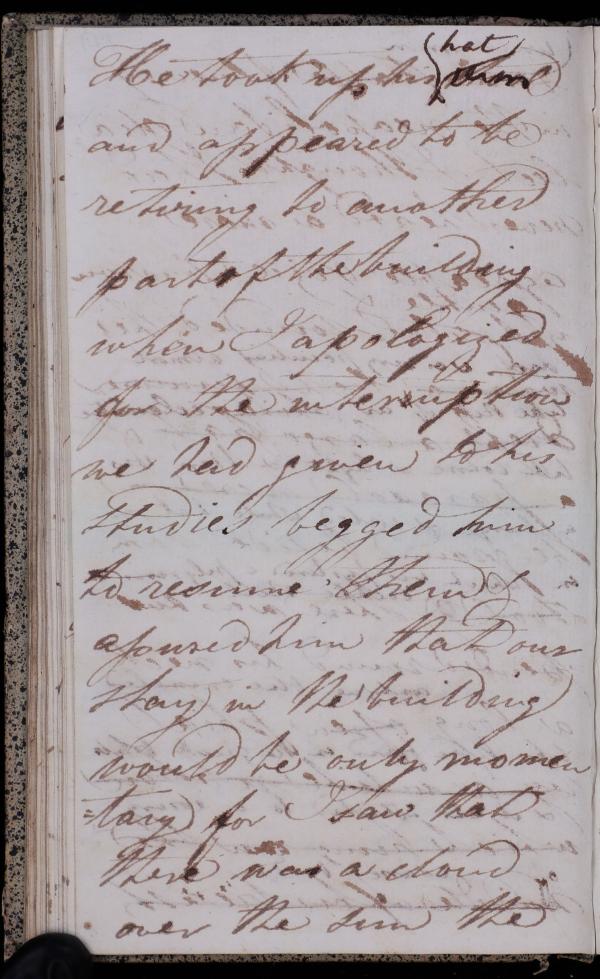 hat
He took up his
and appeared to be
retiring to another
part of the building
when I apologized
for the interruption
we had given to his
studies begged him
to resume them &
assured him that our
stay in the building
would be only momen
=tary for I saw that
there was a cloud
over the sun the